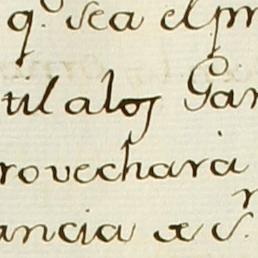 q.e sea el pr
til a los Gan
rovechará
ancia de S.r